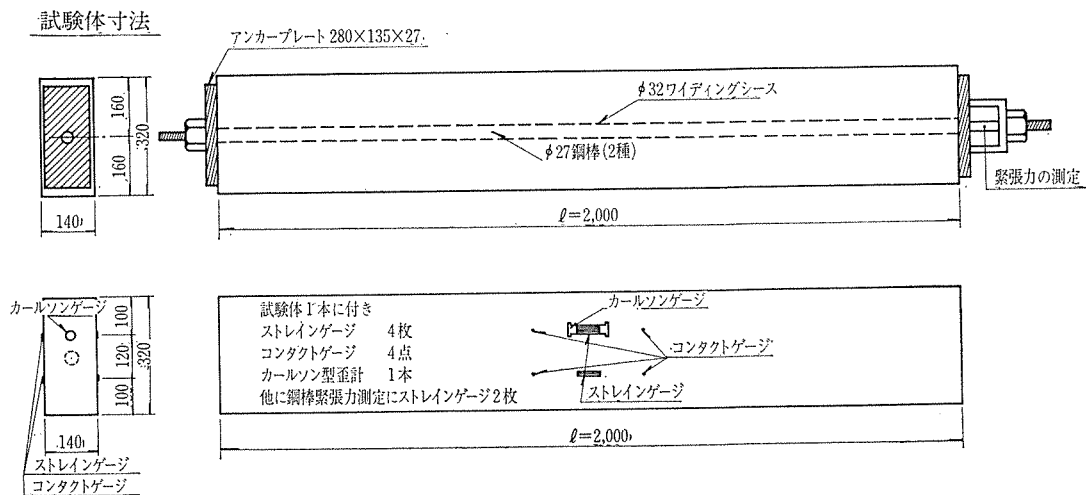 試験体寸法
アンカープレート 280×135×27
φ32ワイディングシース
φ27鋼棒(2種)
160
160
320
140
緊張力の測定
ℓ=2,000
カールソンゲージ
100
120
100
320
140
ストレインゲージ
コンタクトゲージ
試験体1本に付き
ストレインゲージ 4枚
コンタクトゲージ 4点
カールソン型歪計 1本
他に鋼棒緊張力測定にストレインゲージ2枚
カールソンゲージ
コンタクトゲージ
ストレインゲージ
ℓ=2,000